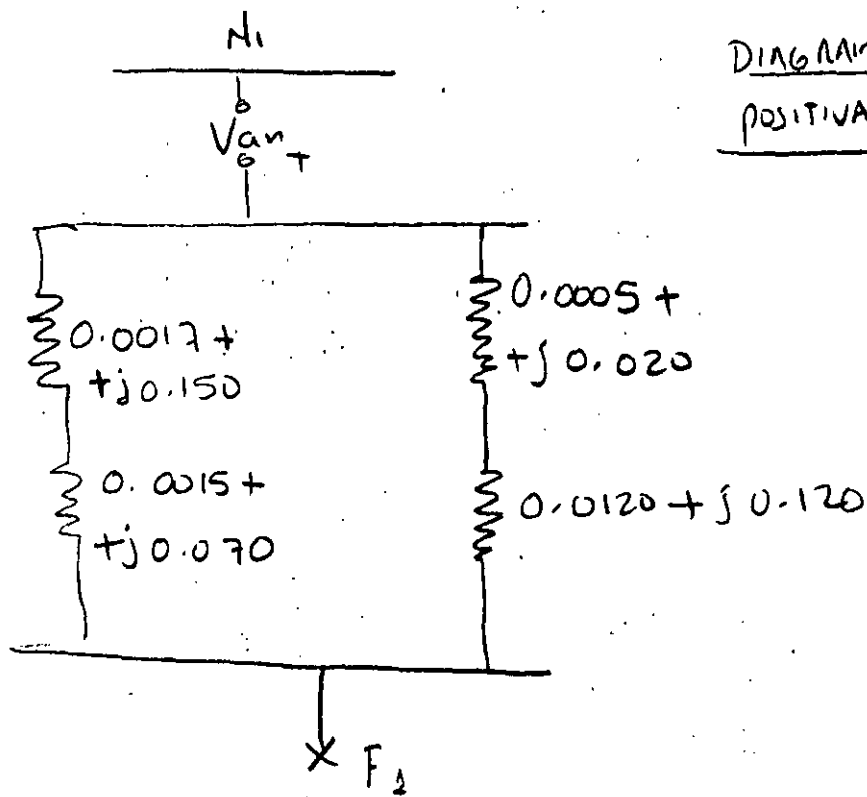 N1
POSITIVA
Van
+
0.0017 +
+j 0.150
0.0005 +
+j 0.020
0.0015 +
+j 0.070
0.0120 + j 0.120
F1